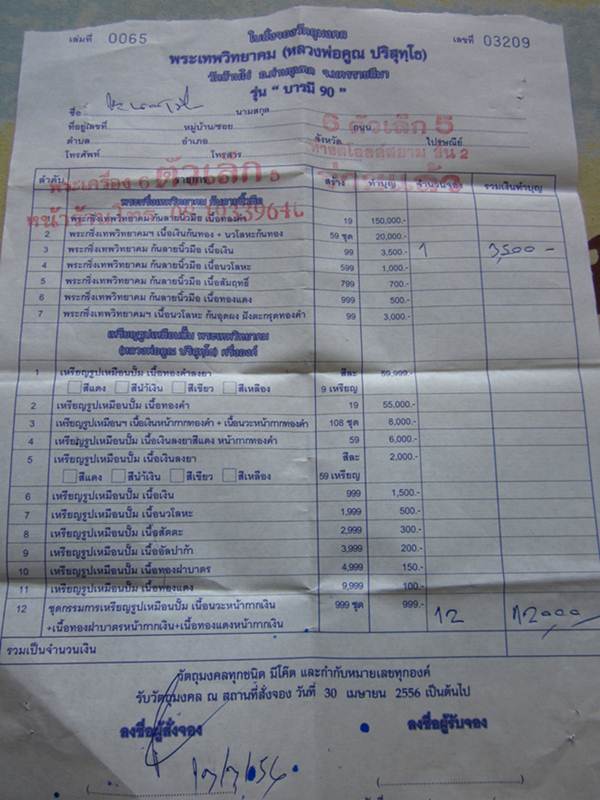 ใบสั่งจองวัตถุมงคล
เล่มที่ 0065
เลขที่ 03209
พระเทพวิทยาคม (หลวงพ่อคูณ ปริสุทฺโธ)
วัดบ้านไร่ อ.ด่านขุนทด จ.นครราชสีมา
รุ่น " บารมี 90 "
ชื่อ นามสกุล
ที่อยู่เลขที่ หมู่บ้าน/ซอย ถนน
ตำบล อำเภอ จังหวัด ไปรษณีย์
โทรศัพท์ โทรสาร
6 ตัวเล็ก 5
พระเครื่อง 6 ตัวเล็ก 5
ลำดับ รายการ สร้าง ทำบุญ จำนวนจอง รวมเงินทำบุญ
พระกริ่งเทพวิทยาคม ก้นลายนิ้วมือ
1 พระกริ่งเทพวิทยาคม ก้นลายนิ้วมือ เนื้อทองคำ 19 150,000.-
2 พระกริ่งเทพวิทยาคมฯ เนื้อเงินก้นทอง + นวโลหะก้นทอง 59 ชุด 20,000.-
3 พระกริ่งเทพวิทยาคม ก้นลายนิ้วมือ เนื้อเงิน 99 3,500.- 1 3,500 -
4 พระกริ่งเทพวิทยาคม ก้นลายนิ้วมือ เนื้อนวโลหะ 599 1,000.-
5 พระกริ่งเทพวิทยาคม ก้นลายนิ้วมือ เนื้อสัมฤทธิ์ 799 700.-
6 พระกริ่งเทพวิทยาคม ก้นลายนิ้วมือ เนื้อทองแดง 999 500.-
7 พระกริ่งเทพวิทยาคมฯ เนื้อนวโลหะ ก้นอุดผง ฝังตะกรุดทองคำ 99 3,000.-
เหรียญรูปเหมือนปั๊ม พระเทพวิทยาคม
(หลวงพ่อคูณ ปริสุทฺโธ) ครึ่งองค์
1 เหรียญรูปเหมือนปั๊ม เนื้อทองคำลงยา สีละ 59,999.-
สีแดง สีน้ำเงิน สีเขียว สีเหลือง 9 เหรียญ
2 เหรียญรูปเหมือนปั๊ม เนื้อทองคำ 19 55,000.-
3 เหรียญรูปเหมือนฯ เนื้อเงินหน้ากากทองคำ + เนื้อนวะหน้ากากทองคำ 108 ชุด 8,000.-
4 เหรียญรูปเหมือนปั๊ม เนื้อเงินลงยาสีแดง หน้ากากทองคำ 59 6,000.-
5 เหรียญรูปเหมือนปั๊ม เนื้อเงินลงยา สีละ 2,000.-
สีแดง สีน้ำเงิน สีเขียว สีเหลือง 59 เหรียญ
6 เหรียญรูปเหมือนปั๊ม เนื้อเงิน 999 1,500.-
7 เหรียญรูปเหมือนปั๊ม เนื้อนวโลหะ 1,999 500.-
8 เหรียญรูปเหมือนปั๊ม เนื้อสัตตะ 2,999 300.-
9 เหรียญรูปเหมือนปั๊ม เนื้ออัลปาก้า 3,999 200.-
10 เหรียญรูปเหมือนปั๊ม เนื้อทองฝาบาตร 4,999 150.-
11 เหรียญรูปเหมือนปั๊ม เนื้อทองแดง 9,999 100.-
12 ชุดกรรมการเหรียญรูปเหมือนปั๊ม เนื้อนวะหน้ากากเงิน 999 ชุด 999.- 12 12000
+เนื้อทองฝาบาตรหน้ากากเงิน+เนื้อทองแดงหน้ากากเงิน
รวมเป็นจำนวนเงิน
วัตถุมงคลทุกชนิด มีโค๊ต และกำกับหมายเลขทุกองค์
รับวัตถุมงคล ณ สถานที่สั่งจอง วันที่ 30 เมษายน 2556 เป็นต้นไป
ลงชื่อผู้สั่งจอง ลงชื่อผู้รับจอง